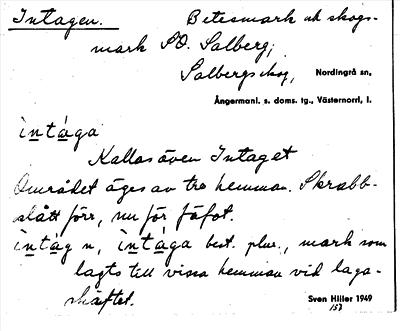 Intagen. Betesmark och skogs-
mark SO. Salberg;
Salbergs skog, Nordingrå sn,
Ångermanl. s. doms. tg., Västernorrl, l.
ìntága
Kallas även Intaget
Området äges av tre hemman. Skrabb-
slått förr, nu för fäfot.
ìntàg n, ìntága best. plur., mark som
lagts till vissa hemman vid laga-
skiftet. Sven Hiller 1949
153